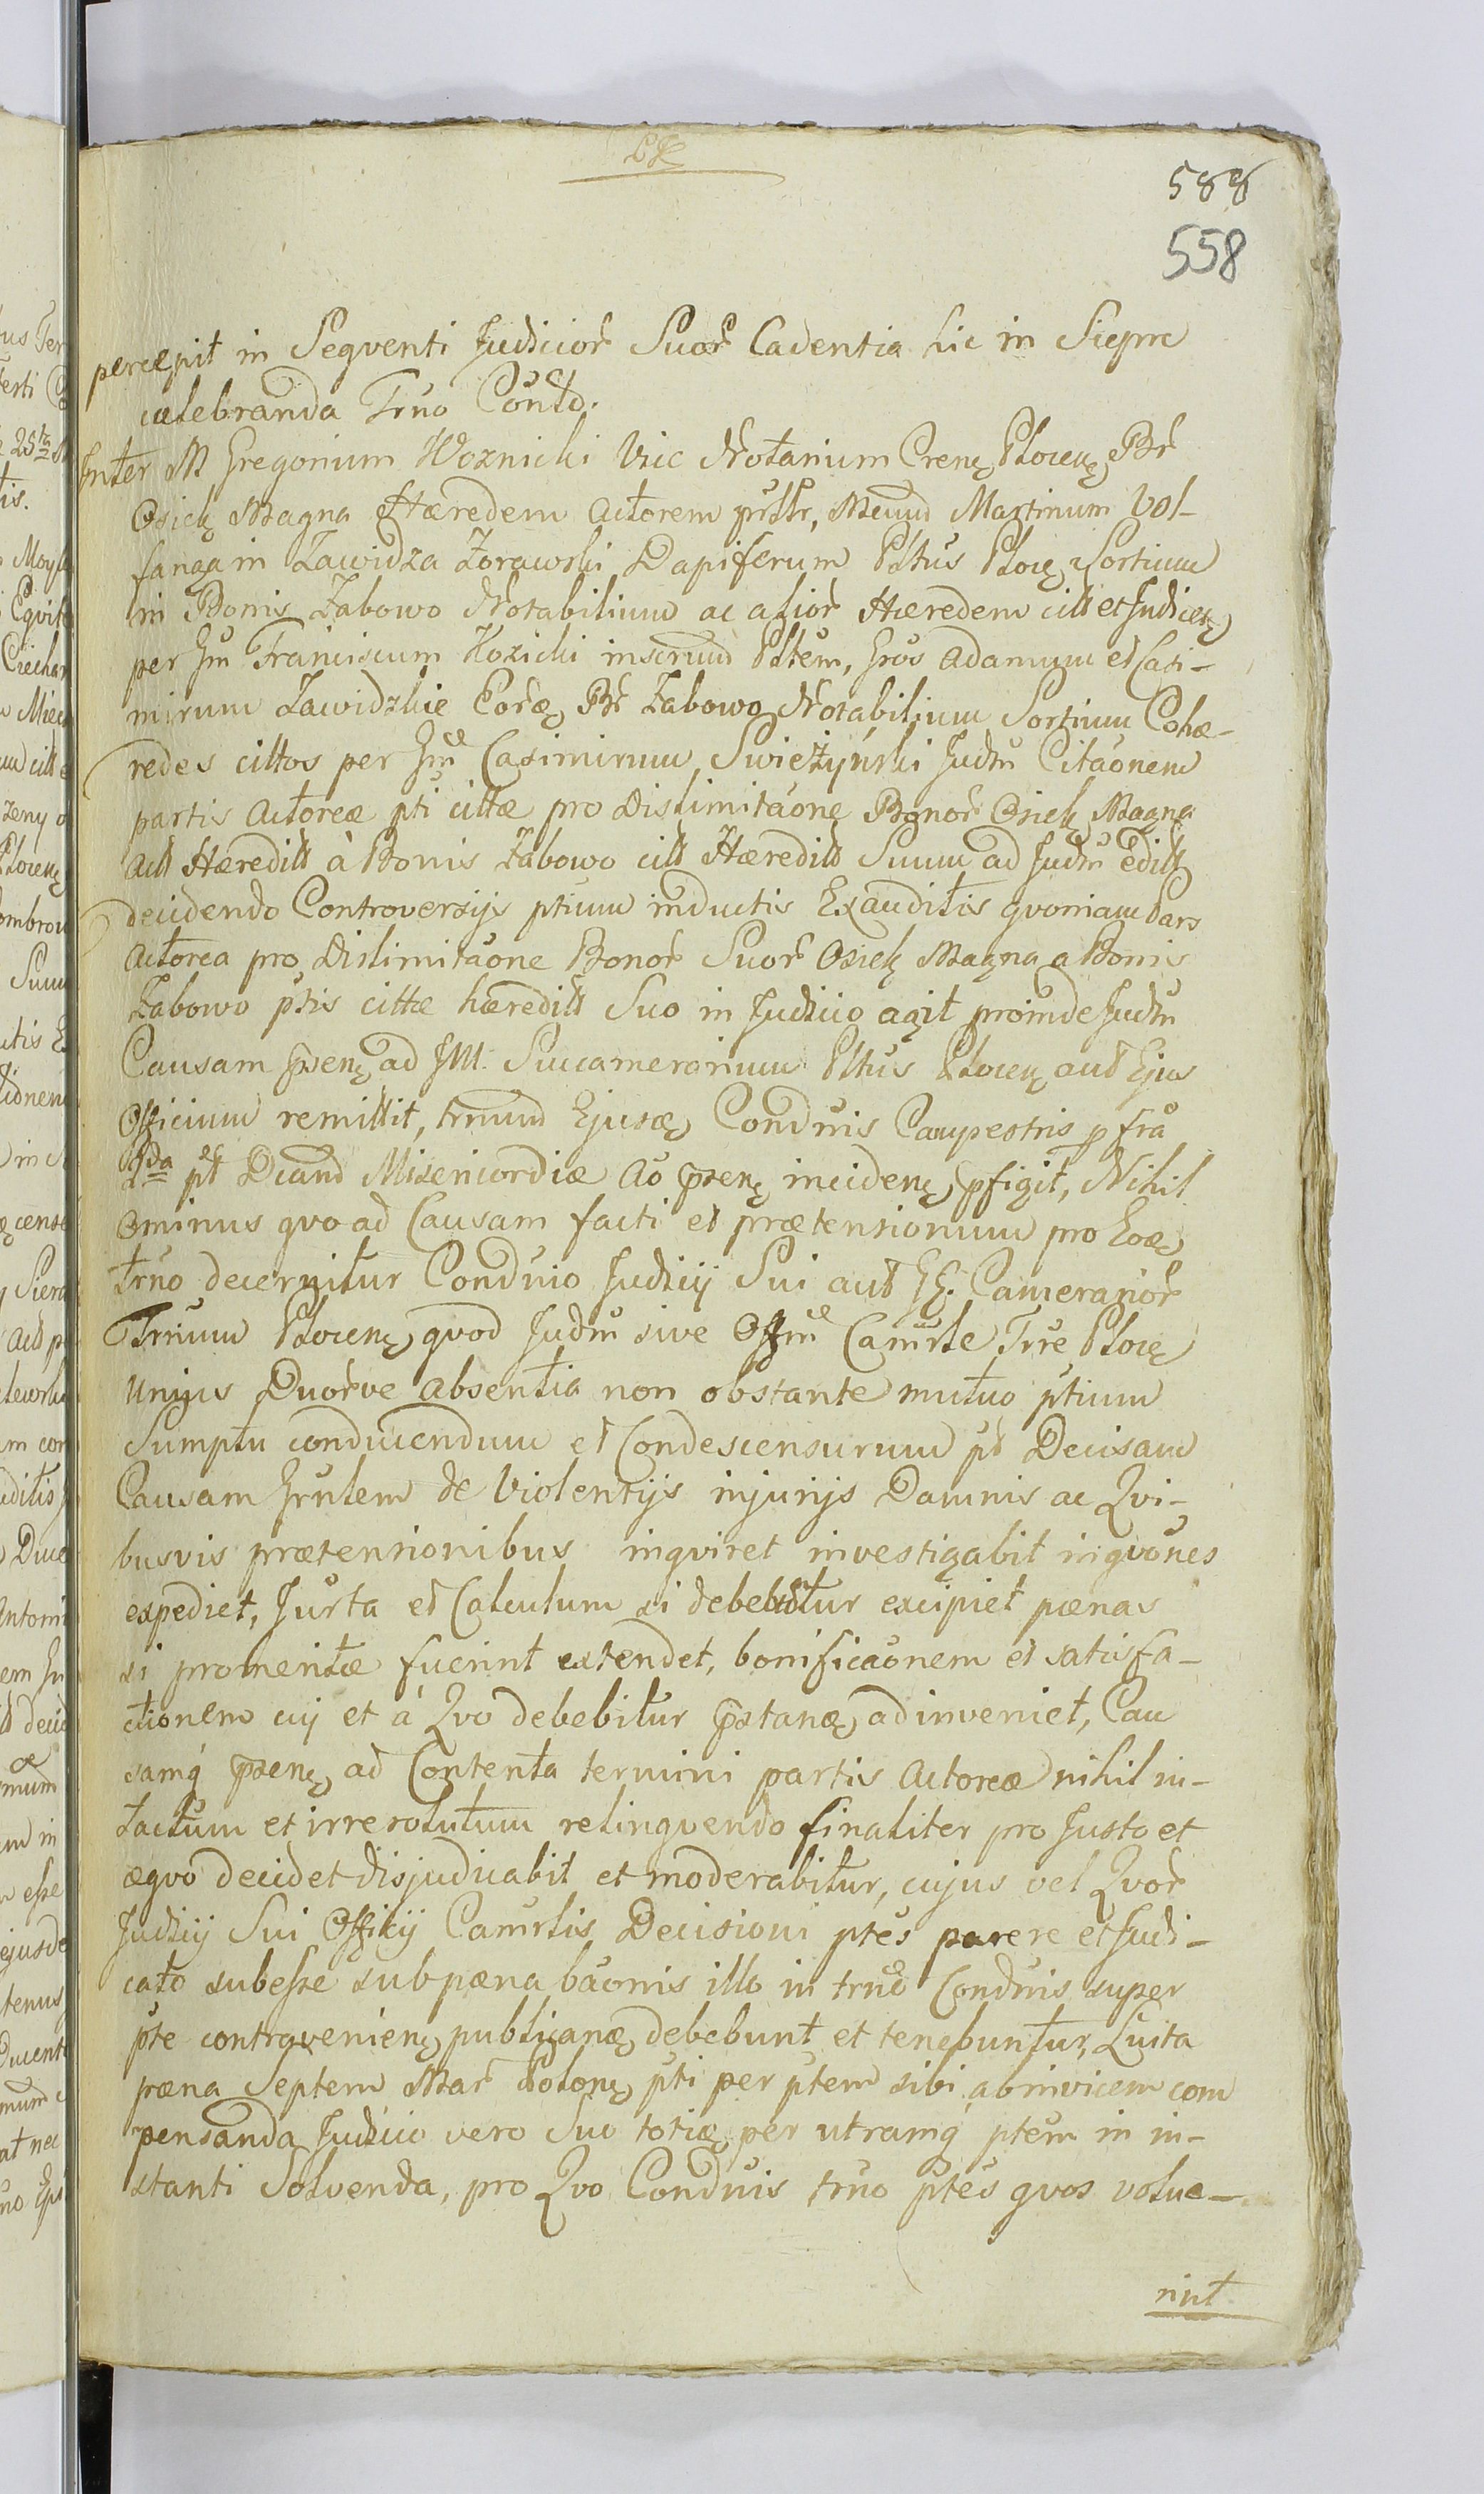 588
558
percepit in Seqventi Judicior Suor Cadentia hic in Sieprc
celebranda Trno Contd.
Inter M Gregorium Woznicki Vic Notarium Crenę Plocenę Br
Osiek Magna Hæredem Actorem prsstr, Mcum Martinum Vol-
fanga in Zawidza Zorawski Dapiferum Pltus Plocę Sortium
in Bonis Zabowo Notabilium ac alior Hæredem citt et Judicię
per Gm Franciscum Kozicki inscrum Pltem, Gros Adamum et Casi-
mirum Zawidzkie Coræ Br Zabowo Notabilium Sortium Cohæ-
redes cittos per Gm Casimirum Swiezynski Judm Citaonem
partis Actoreæ pti cittæ pro Dislimitaone Bonor Osiek Magna
Actt Hæreditt à Bonis Zabowo citt Hæreditt Suum ad Judm editt
decidendo Controversijs ptium inductis Exauditis qvoniam Pars
Actorea pro Dislimitaone Bonor Suor Osiek Magna a Bonis
Zabowo ptis cittæ hæreditt Suo in Judicio agit proinde Judm
Causam psenę ad JM. Succamerarium Pltus Plocenę aut Ejus
Officium remittit, trnum Ejusdę Conduis Campestris p fra
2da pt Dcam Misericordiæ Ao psenę incidenę pfigit, Nihil
Ominus qvo ad Causam facti et prætensionum pro Eoę
trno decernitur Conduio Judicij Sui aut GG. Camerarior
Trnum Plocenę qvod Judm sive Offm Camrle Trre Plocę
unius Duorve absentia non obstante mutuo ptium
Sumptu conducendum et Condescensurum pt Decisam
Causam Grnlem de Violentijs injurijs Damnis ac Qvi-
busvis prætensionibus inqviret investigabit inqvones
expediet, Jurta et Calculum si debebitur excipiet pænas
si promeritæ fuerint extendet, bonificaonem et satisfa-
ctionem cij et à Qvo debebitur pstanę adinveniet, Cau
samq psenę ad Contenta termini partis Actoreæ nihil in-
tactum et irresolutum relinqvendo finaliter pro Justo et
æqvo decidet disjudicabit et moderabitur, cujus vel Qvor
Judicij Sui Officij Camrlis Decisioni ptes parere et Judi-
cato subesse sub pæna baonis illo in trno Conduis super
pte contravenienę publicanę debebunt et tenebuntur, Luita
pæna Septem Mar Polonę pti per ptem sibi abinvicem com
pensanda Judicio vero Suo totię per utramq ptem in in-
stanti Solvenda, pro Qvo Conduis trno ptes qvos volue-
rint